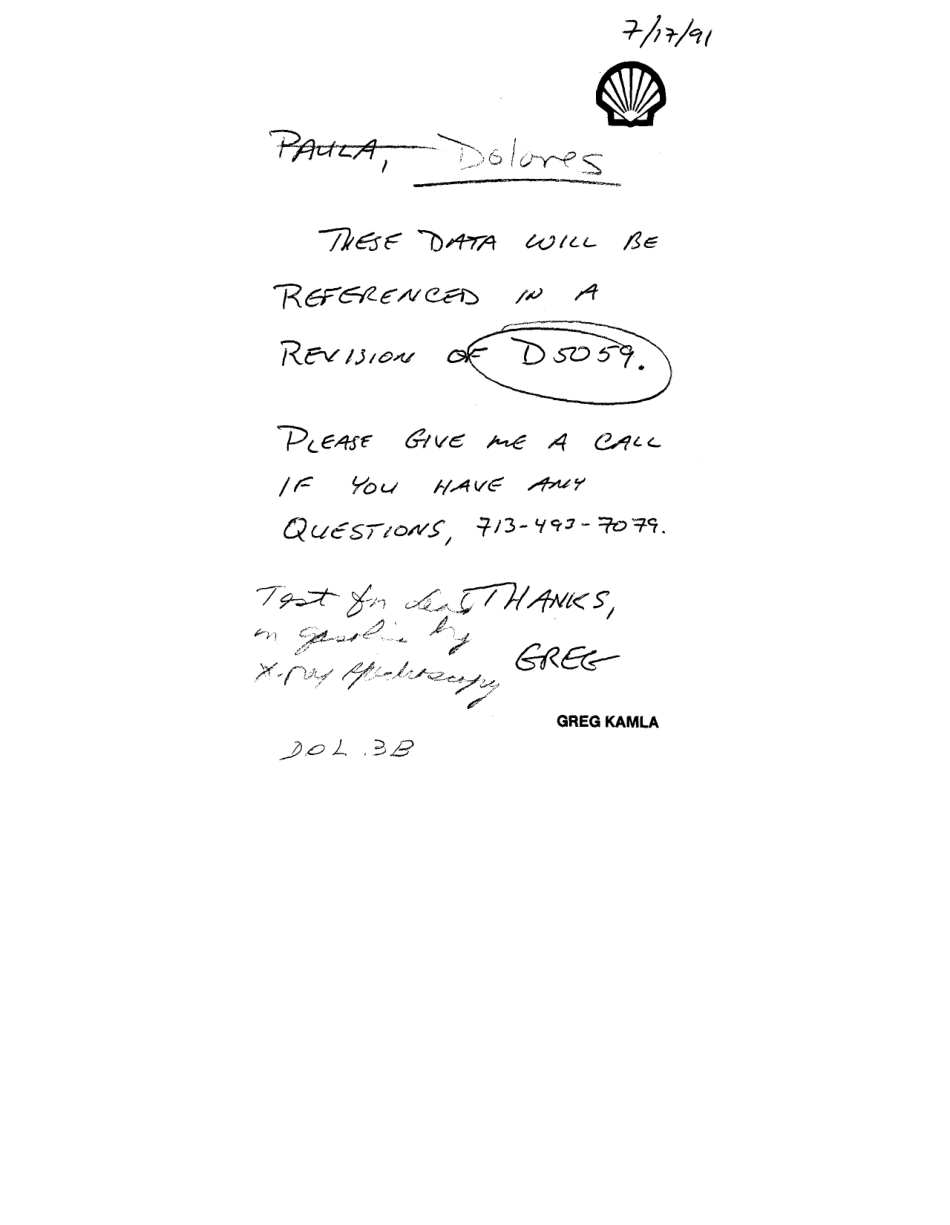 7/17/91
PAULA, Dolores
THESE DATA WILL BE
REFERENCED IN A
REVISION OF D5059.
PLEASE GIVE ME A CALL
IF YOU HAVE ANY
QUESTIONS, 713-493-7079.
THANKS,
GREG
Test for Lead
in gasoline by
X-ray Spectroscopy
GREG KAMLA
DOL.3B